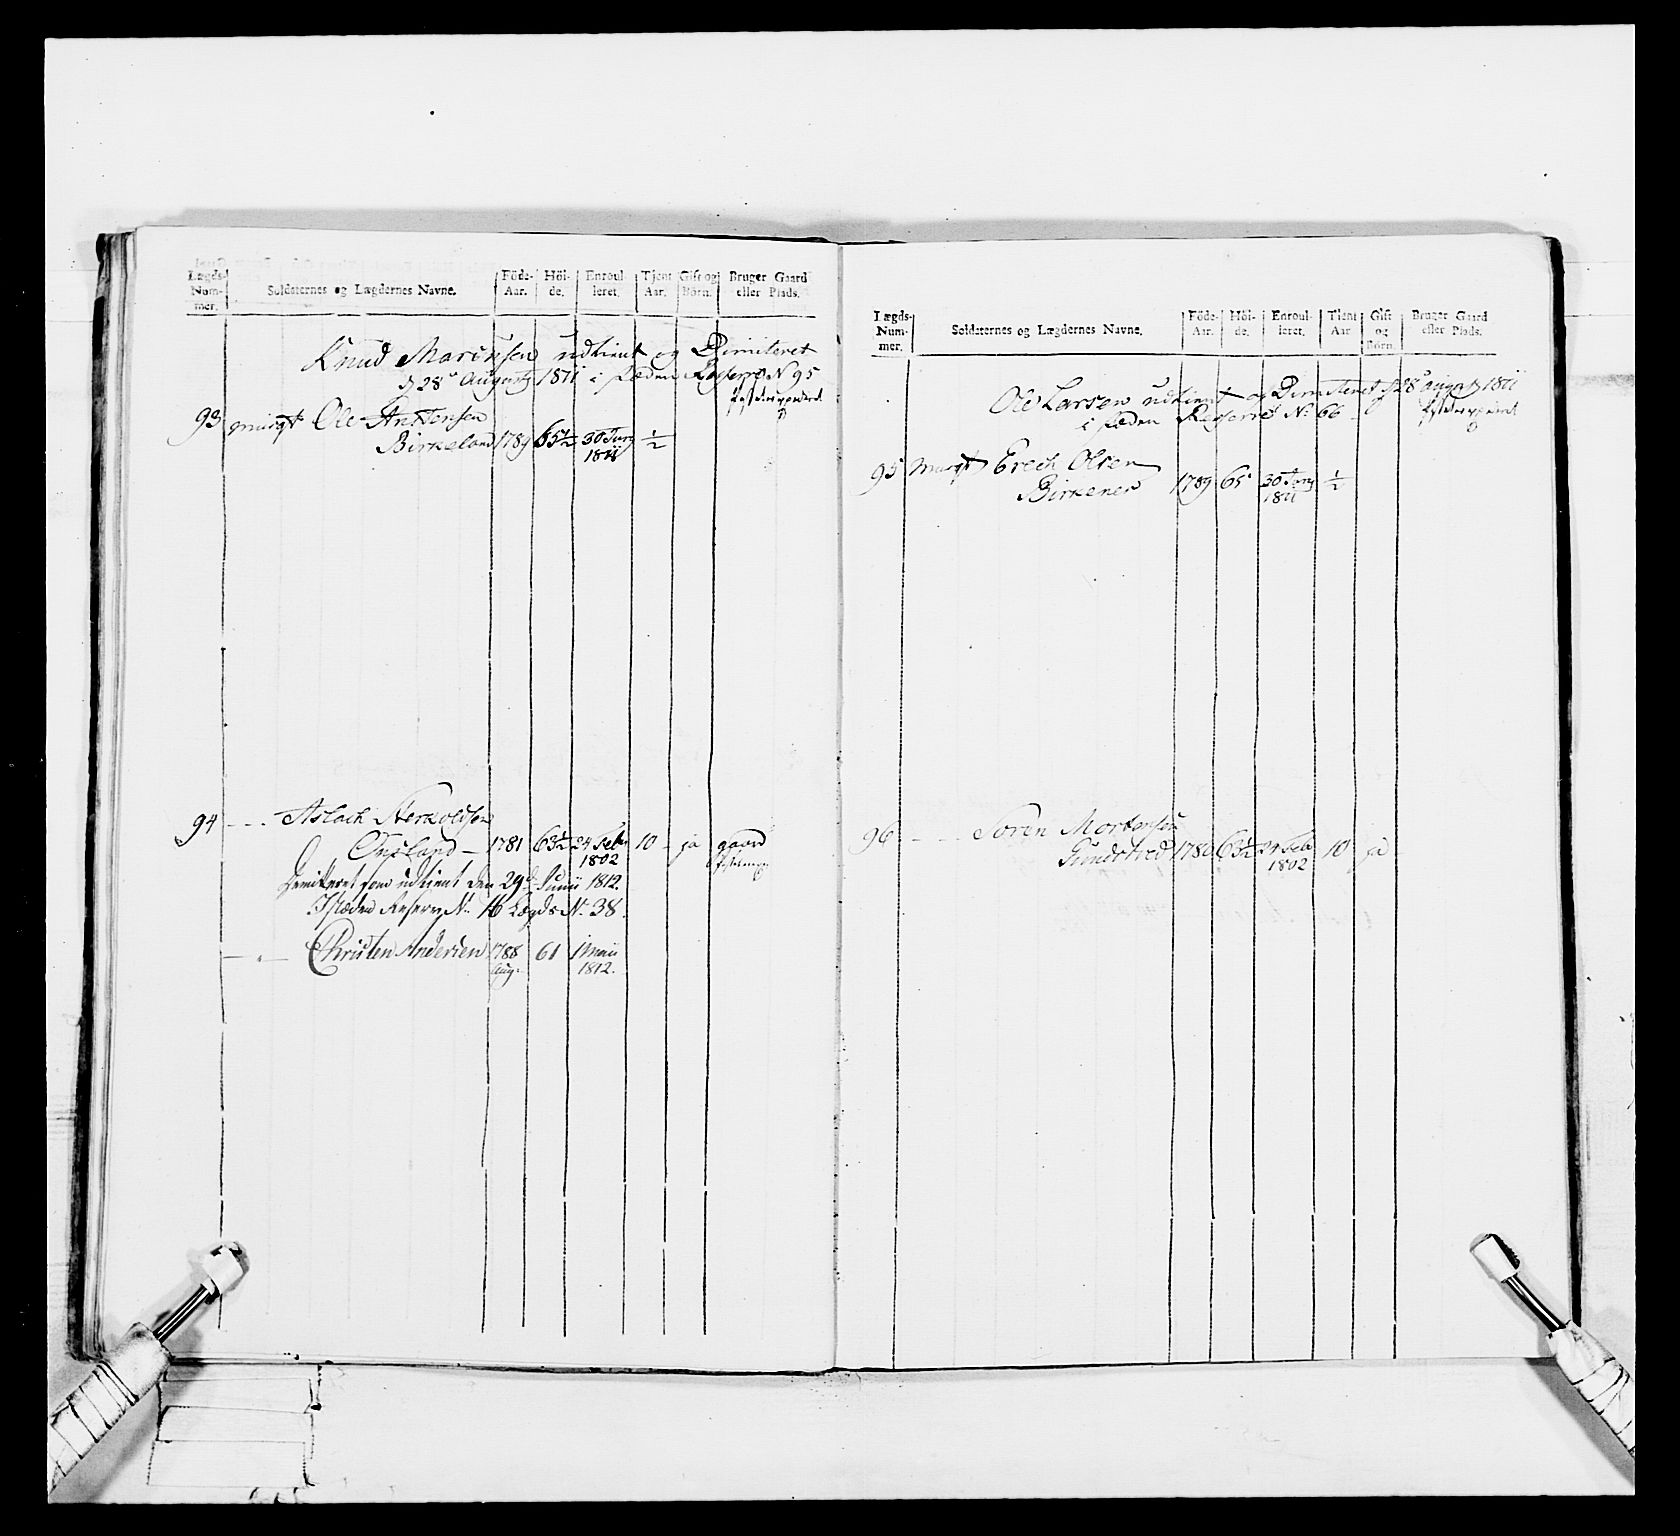 Lægds-
Num-
mer.
Soldaternes og Lægdernes Navne.
Föde-
Aar.
Höi-
de.
Enroul-
leret.
Tjent
Aar.
Gift og
Börn.
Bruger Gaard
eller Plads.
Knud udtient og Dimiteret
d 28 Augusty 1811 i stæden Reserve N 95
93 Ole
Birkeland 1789 65½ 30 Juny ½
1811
94 - - - Aslach
1781 63½ 24 Febr 10 - ja gaard
1802
Demitteret som udtient den 29d Junii 1812.
I stæden Reserv No 16 Lægds No 38.
Christen Andersen 1788 61 1 Maii
Aug. 1812.
Lægds-
Num-
mer.
Soldaternes og Lægdernes Navne.
Föde-
Aar.
Höi-
de.
Enroul-
leret.
Tient
Aar
Gift
og
Börn.
Bruger Gaard
eller Plads.
Ole Larsen udtient og Dimiteret d 28 augusty 1811
i stæden Reserve No 66
95 Erech Olsen
Birkenes 1789 65 30 Juny ½
1811
96 - - - Soren Mortensen
1780 63½ 24 Feb 10 ja
1802